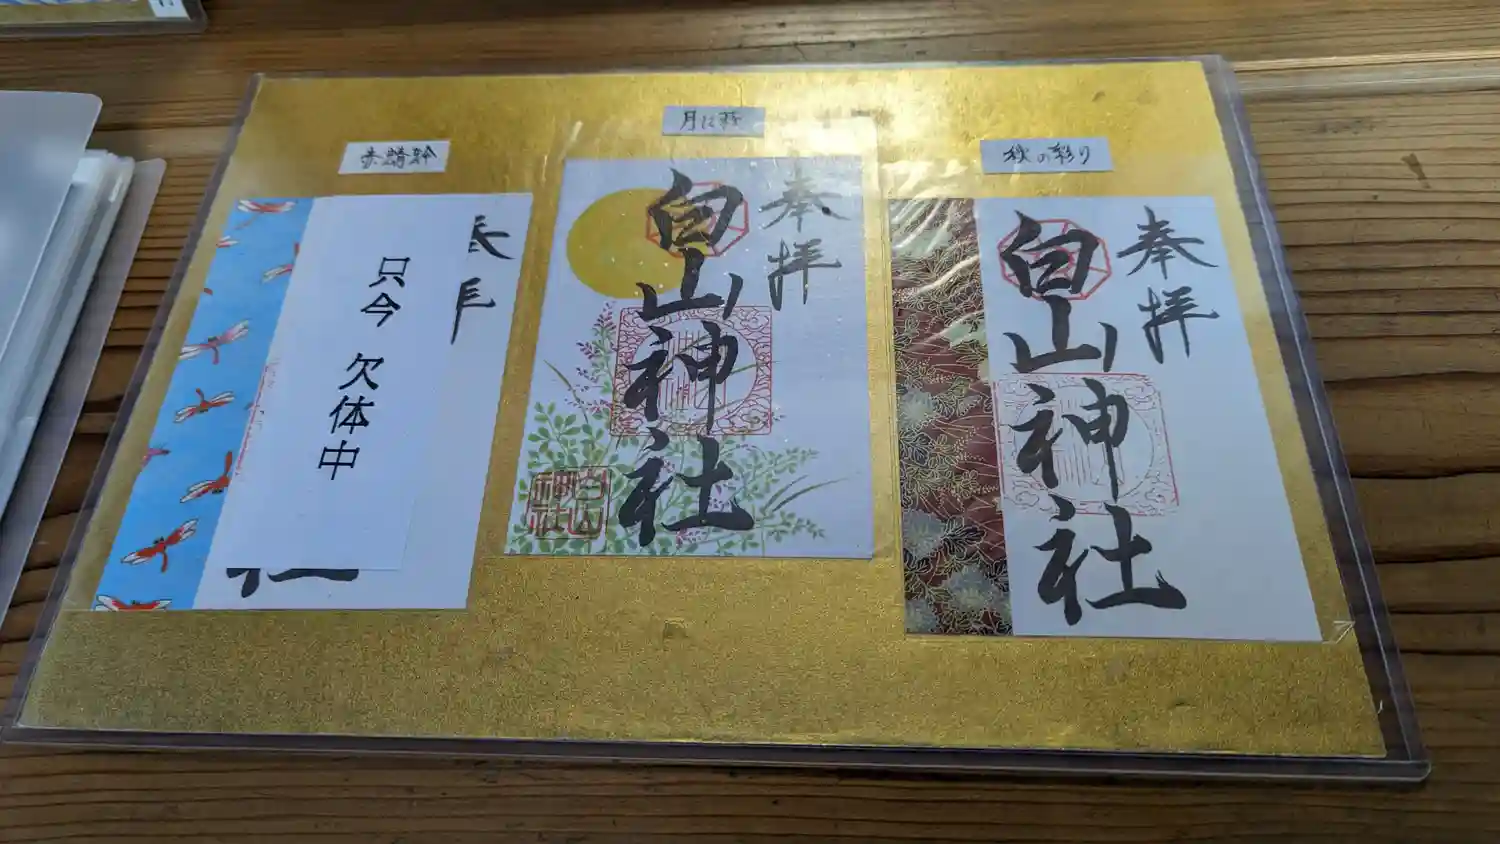 赤蜻蛉
奉
拝
只今 欠体中
社
月に萩
奉拝
白山神社
白山
神社
秋の彩り
奉拝
白山神社